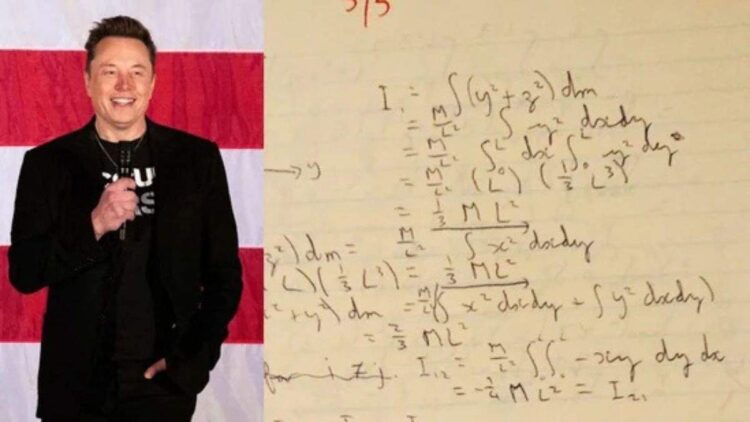 5/5
I₁ = ∫(y²+z²)dm
= M/L² ∫ y² dxdy
= M/L² ∫₀ᴸ dx ∫₀ᴸ y² dy
→ y
= M/L² (L) (1/3 L³)
= 1/3 M L²
z²)dm = M/L² ∫ x² dxdy
L)(1/3 L³) = 1/3 ML²
x²+y²) dm = M/L² (∫ x² dxdy + ∫ y² dxdy)
= 2/3 ML²
I₁₂ = M/L² ∫∫ -xy dy dx
= -1/4 M L² = I₂₁